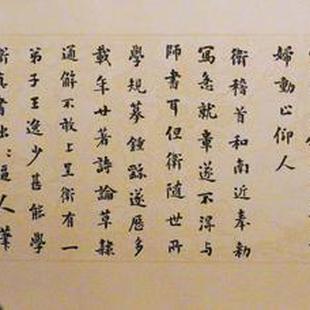 婦動止仰人
衛稽首和南近奉勅
寫急就章遂不得与
師書耳但衛隨世所
學規摹鍾繇遂歷多
載年廿著詩論草隸
通解不敢上呈衛有一
弟子王逸少甚能學
衛真書咄〻逼人筆